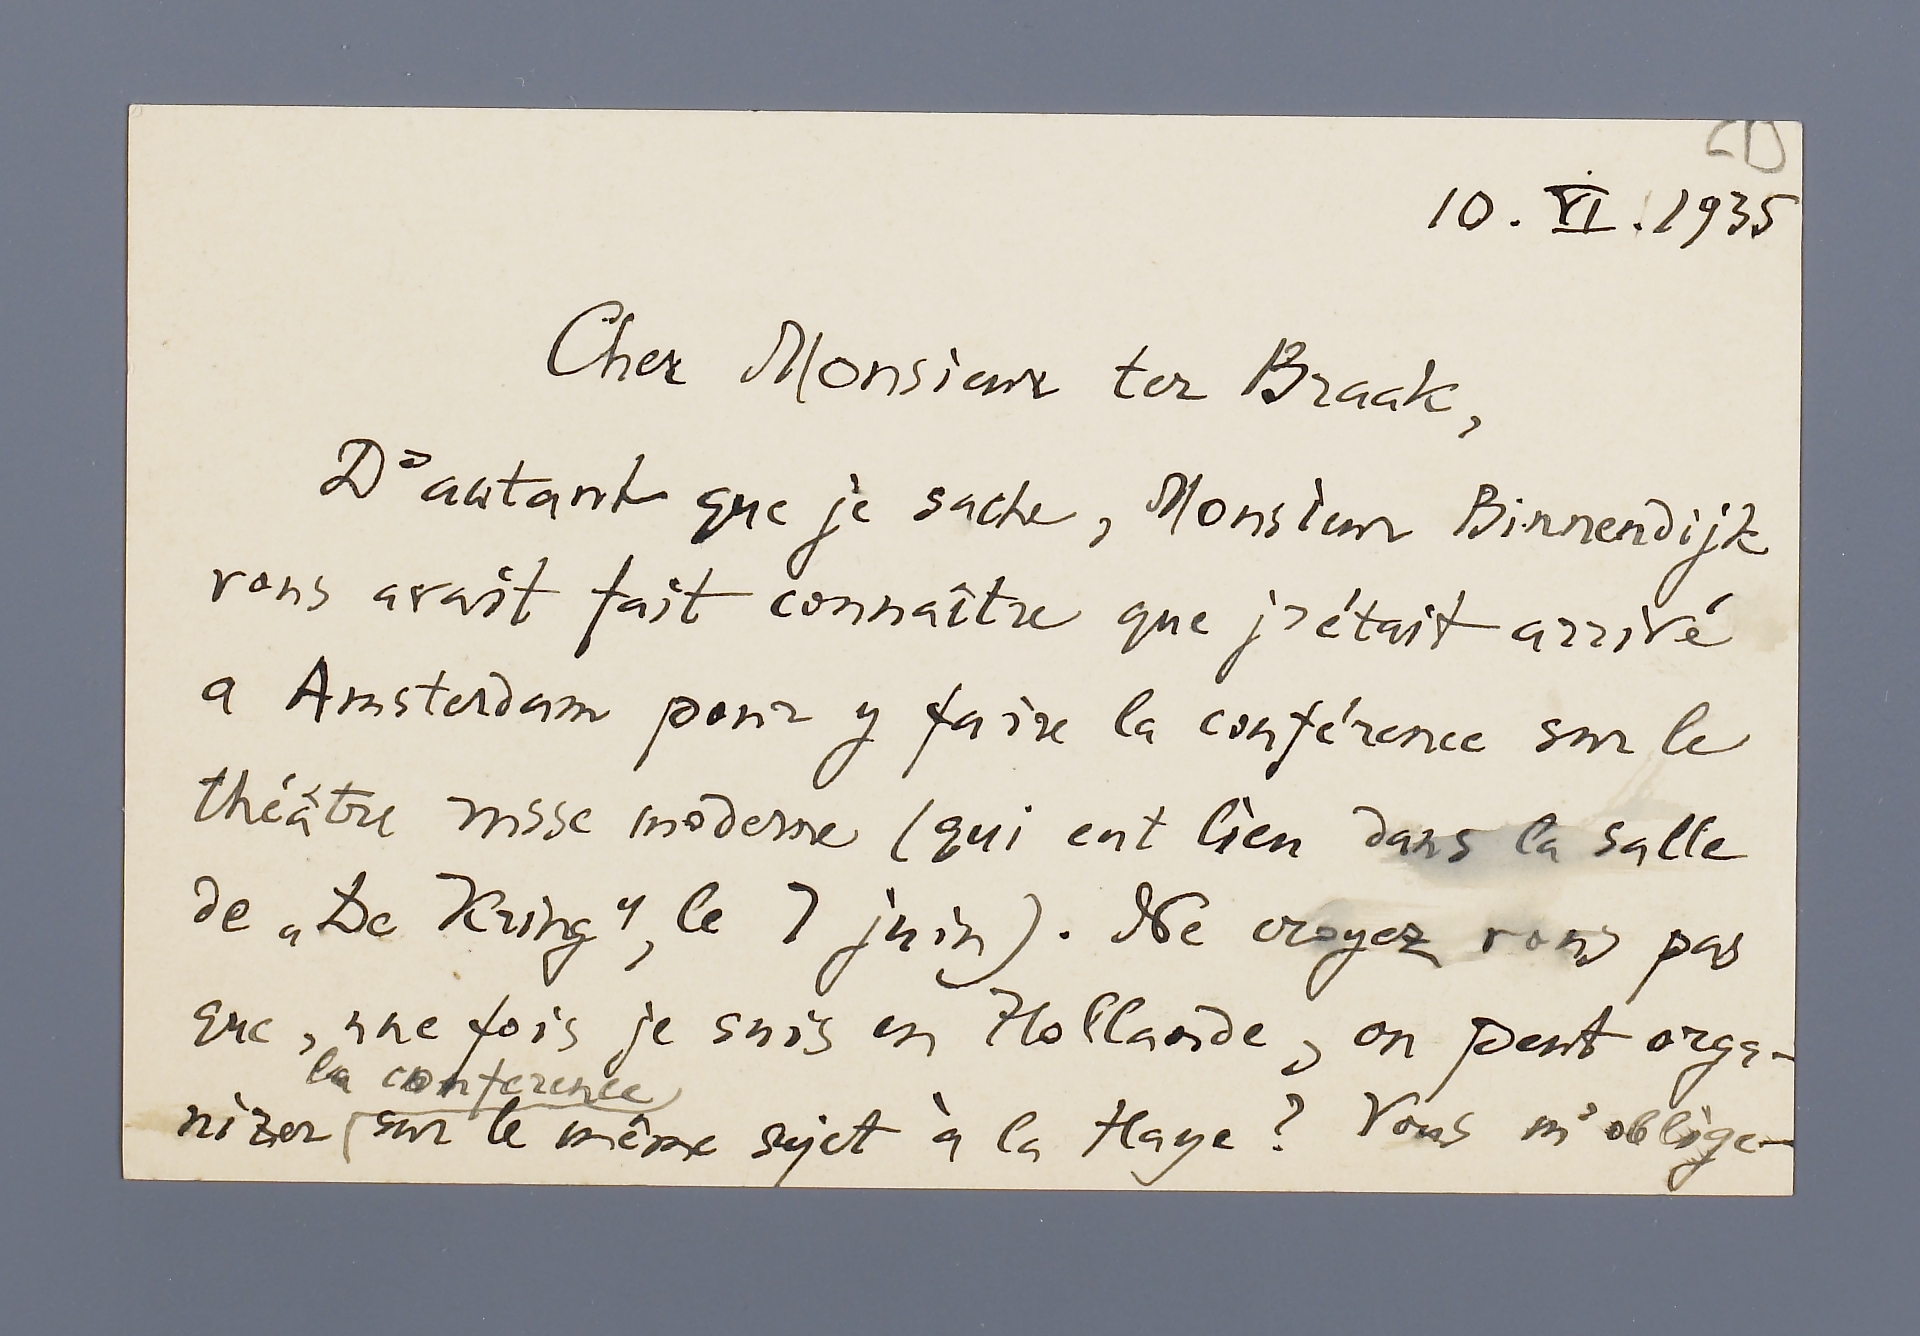 10. VI. 1935
Cher Monsieur ter Braak,
D'autant que je sache, Monsieur Binnendijk
vous avait fait connaître que j'était arrivé
a Amsterdam pour y faire la conférence sur le
théâtre russe moderne (qui eut lieu dans la salle
de „De Kring", le 7 juin). Ne croyez vous pas
que, une fois je suis en Hollande, on peut orga-
la conference
nizer sur le même sujet à la Haye? Vous m'oblige-